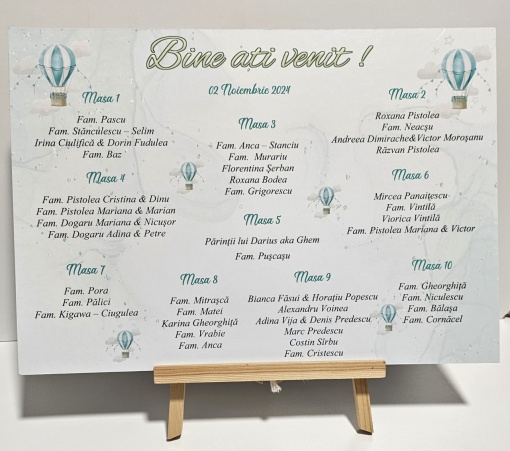 Bine ati venit !
02 Noiembrie 2024
Masa 1
Fam. Pascu
Fam. Stănculescu – Selim
Irina Ciulifică & Dorin Fudulea
Fam. Baz
Masa 2
Roxana Pistolea
Fam. Neacșu
Andreea Dimirache&Victor Moroșanu
Răzvan Pistolea
Masa 3
Fam. Anca – Stanciu
Fam. Murariu
Florentina Șerban
Roxana Bodea
Fam. Grigorescu
Masa 4
Fam. Pistolea Cristina & Dinu
Fam. Pistolea Mariana & Marian
Fam. Dogaru Mariana & Nicușor
Fam. Dogaru Adina & Petre
Masa 5
Părinții lui Darius aka Ghem
Fam. Pușcașu
Masa 6
Mircea Panaitescu
Fam. Vintilă
Viorica Vintilă
Fam. Pistolea Mariana & Victor
Masa 7
Fam. Pora
Fam. Pălici
Fam. Kigawa – Ciugulea
Masa 8
Fam. Mitrașcă
Fam. Matei
Karina Gheorghiță
Fam. Vrabie
Fam. Anca
Masa 9
Bianca Făsui & Horațiu Popescu
Alexandru Voinea
Adina Vija & Denis Predescu
Marc Predescu
Costin Sîrbu
Fam. Cristescu
Masa 10
Fam. Gheorghiță
Fam. Niculescu
Fam. Bălașa
Fam. Cornăcel